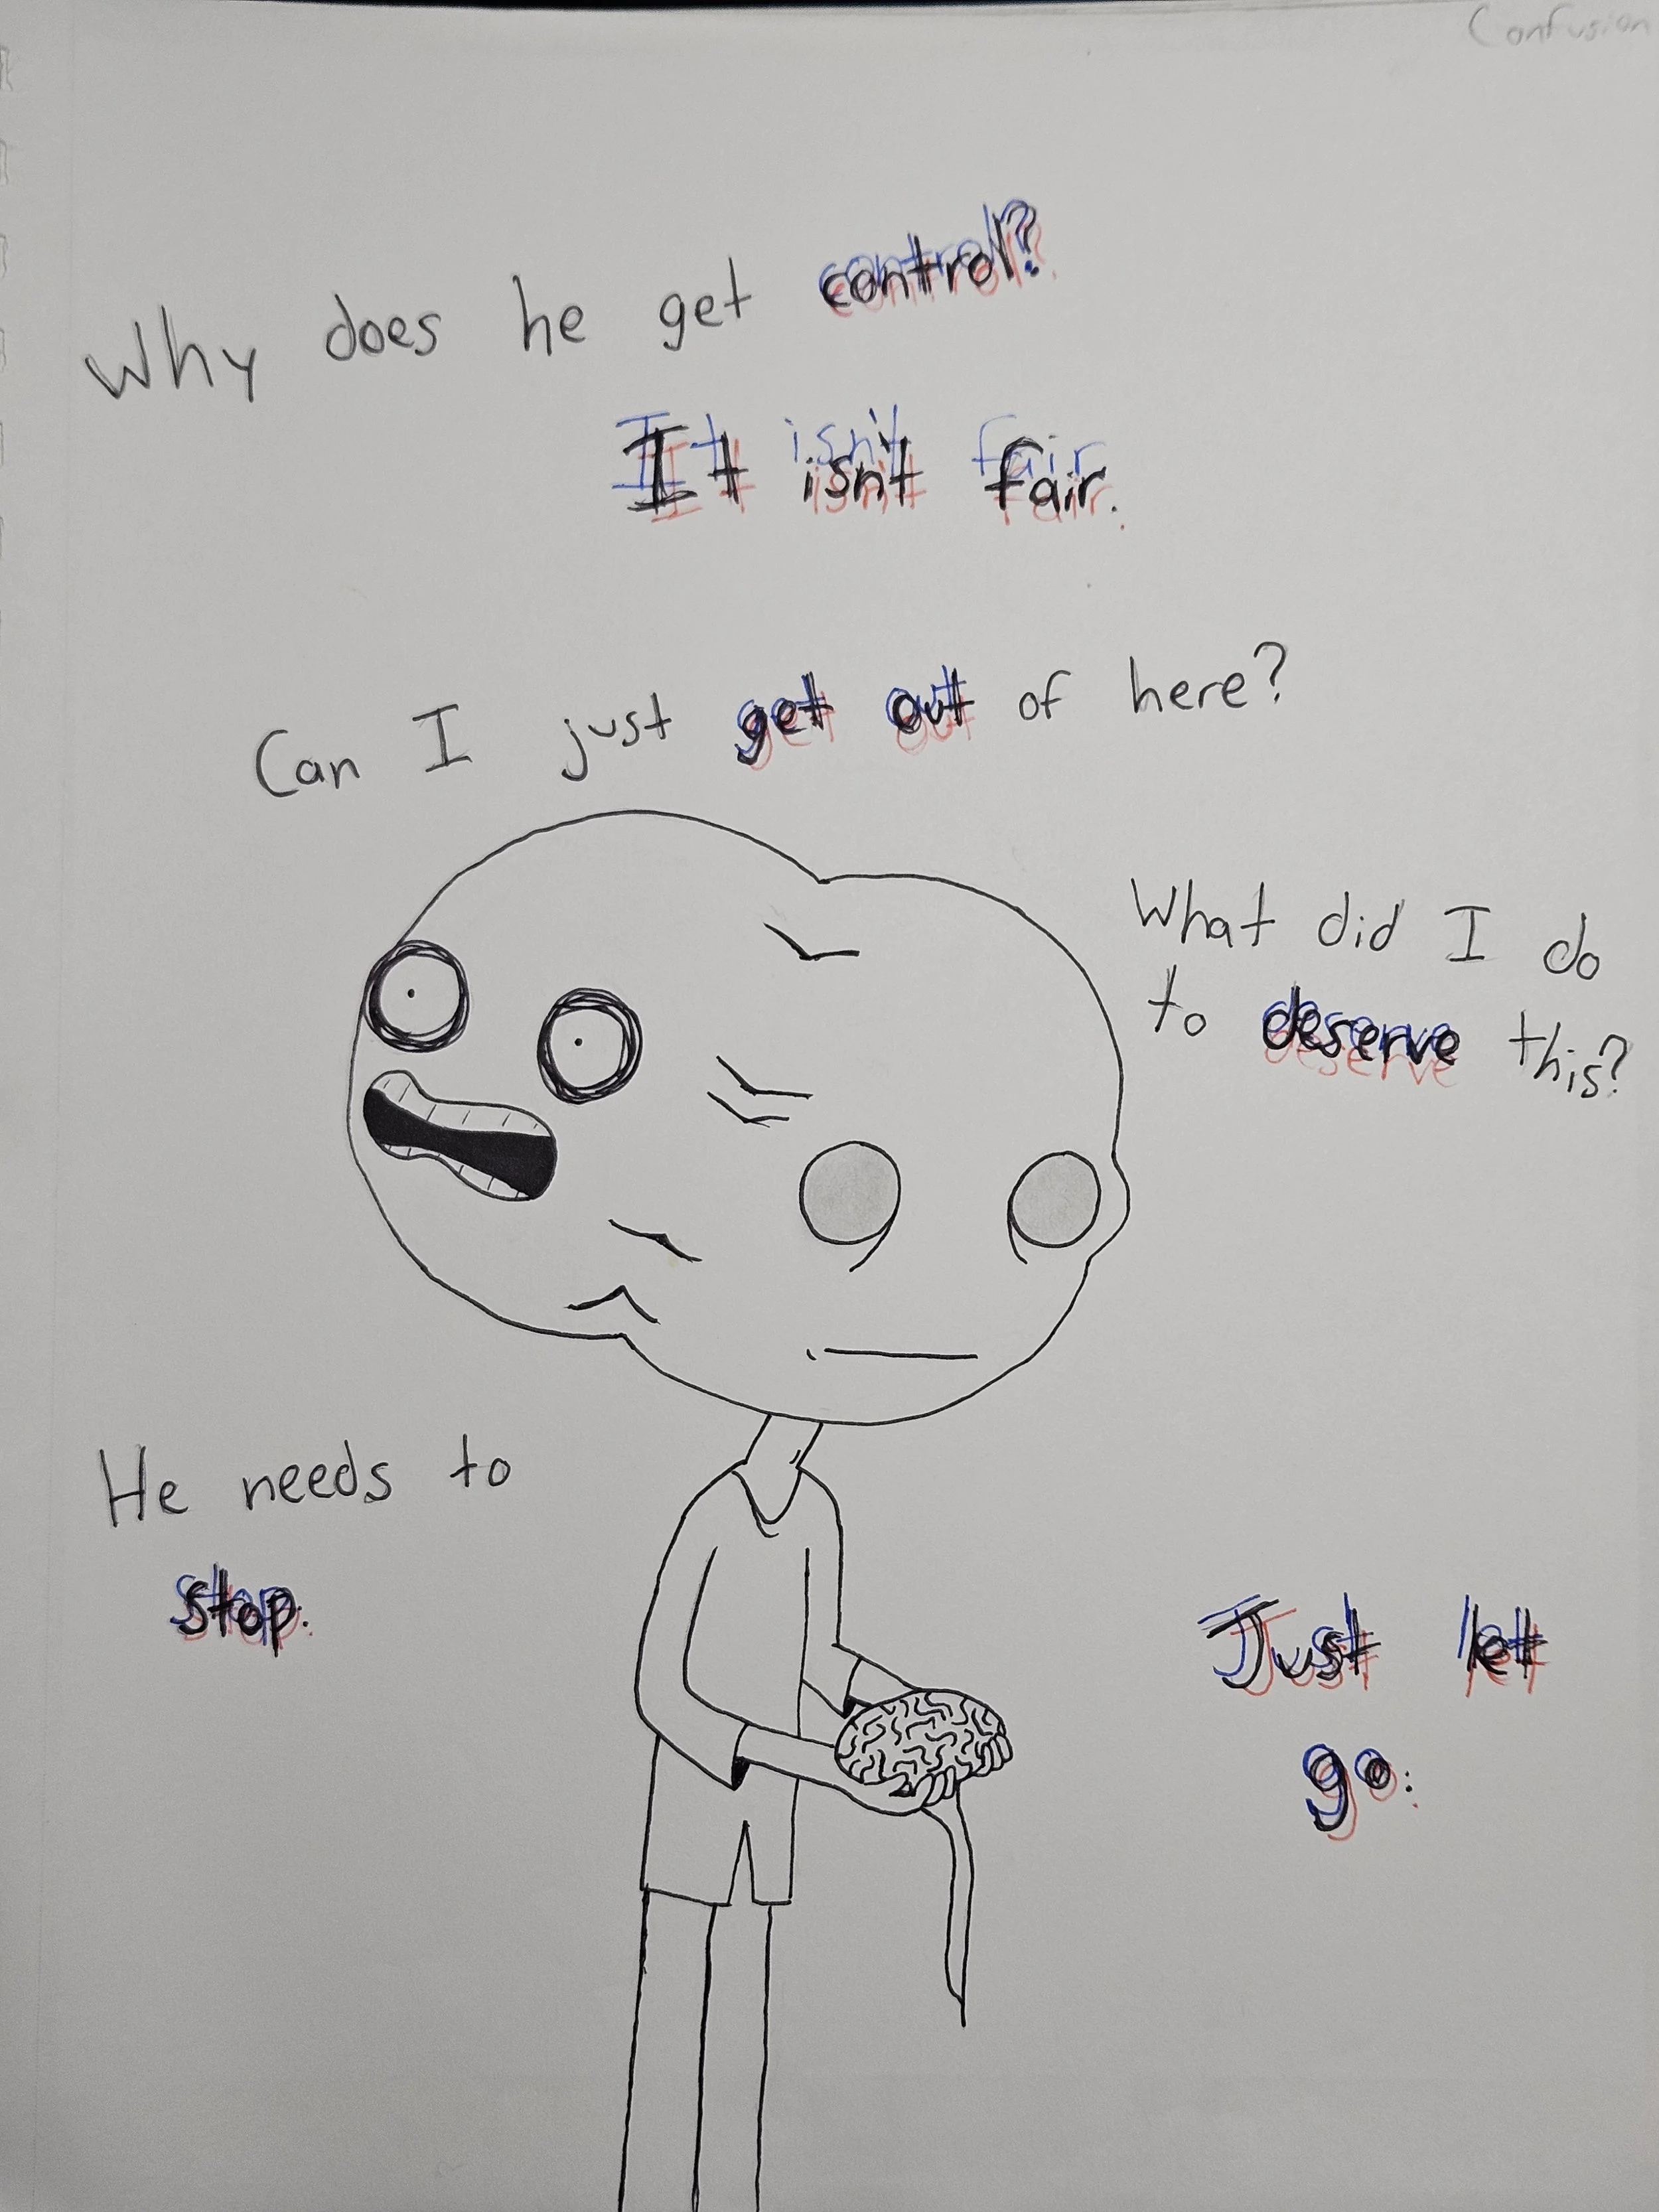 Confusion
Why does he get control?
It isn't fair.
Can I just get out of here?
What did I do
to deserve this?
He needs to
stop.
Just let
go.